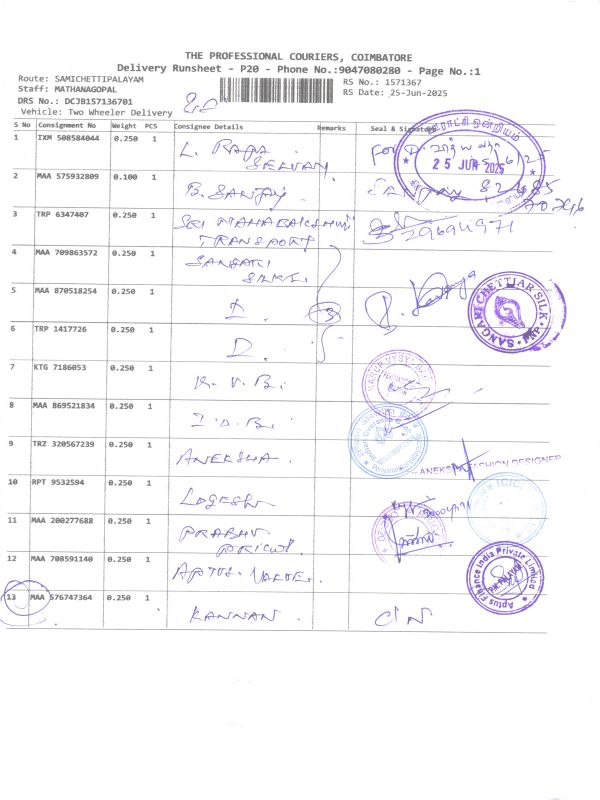 THE PROFESSIONAL COURIERS, COIMBATORE
Delivery Runsheet - P20 - Phone No.:9047080280 - Page No.:1
Route: SAMICHETTIPALAYAM
RS No.: 1571367
Staff: MATHANAGOPAL
RS Date: 25-Jun-2025
DRS No.: DCJB157136701
Vehicle: Two Wheeler Delivery
S No Consignment No Weight PCS Consignee Details Remarks Seal & Signature
1 IXM 508584044 0.250 1 L. RAJA SELVAN
25 JUN 2025
2 MAA 575932809 0.100 1 B. SANJAY
3 TRP 6347407 0.250 1 SRI MAHALAKSHMI TRANSPORT
4 MAA 709863572 0.250 1 SANGARI SILKS.
5 MAA 870518254 0.250 1 D. 3
SANGARI CHETTIAR SILK PNP
6 TRP 1417726 0.250 1 D.
7 KTG 7186053 0.250 1 K. V. B.
8 MAA 869521834 0.250 1 I. D. B.
9 TRZ 320567239 0.250 1 ANEKSHA.
ANEKSHA FASHION DESIGNER
10 RPT 9532594 0.250 1 LOGESH
ICICI
11 MAA 200277688 0.250 1 PRABHU
12 MAA 708591140 0.250 1 APTUS VALUE.
Aptus Finance India Private Limited
13 MAA 576747364 0.250 1 KANNAN.